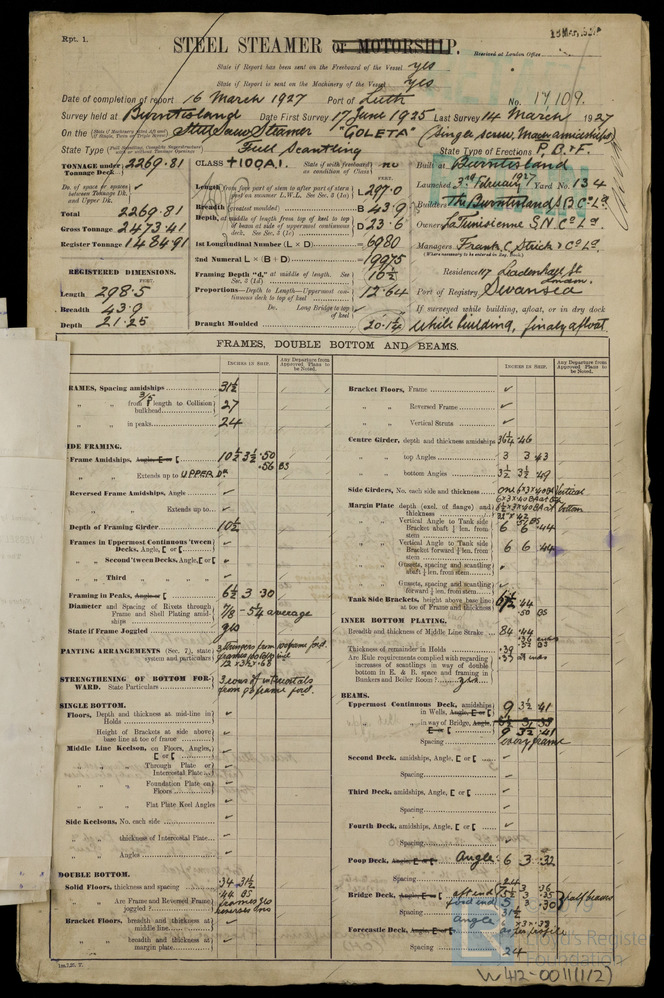 Rpt. 1.
STEEL STEAMER or MOTORSHIP.
Received at London Office
State if Report has been sent on the Freeboard of the Vessel yes
State if Report is sent on the Machinery of the Vessel yes
Date of completion of report 16 March 1927 Port of Leith No. 17109.
Survey held at Burntisland Date First Survey 17 June 1925 Last Survey 14 March 1927
On the Steel Screw Steamer "GOLETA" (Single screw, Mach amidships)
State Type Full Scantling State Type of Erections P, B & F.
TONNAGE under Tonnage Deck 2269.81 CLASS +100A1. State if with freeboard as condition of Class no Built at Burntisland
Do. of space or spaces between Tonnage Dk. and Upper Dk.
Launched 3rd February 1927 Yard No. 134
Total 2269.81
Gross Tonnage 2473.41
Register Tonnage 1484.91
Length from fore part of stem to after part of stern post on summer L.W.L. See Sec. 3 (1a) L 297.0
Breadth (greatest moulded) B 43.9
Depth, at middle of length from top of keel to top of beam at side of uppermost continuous deck. See Sec. 3 (1c) D 23.6
1st Longitudinal Number (L × D) = 6980
2nd Numeral L × (B + D) =
Framing Depth "d," at middle of length. See Sec. 3 (1d)
Proportions—Depth to Length—Uppermost continuous deck to top of keel 12.64
Do. Long Bridge to top of keel
Draught Moulded 20.1½
Builders The Burntisland S B Co Ld
Owners La Tunisienne S.N. Co Ld
Managers Frank C. Strick & Co Ld
(Where necessary to be entered in Reg. Book.)
Residence 117 Leadenhall St. London.
Port of Registry Swansea
If surveyed while building, afloat, or in dry dock
While building, finally afloat.
REGISTERED DIMENSIONS.
FEET.
Length 298.5
Breadth 43.9
Depth 21.25
FRAMES, DOUBLE BOTTOM AND BEAMS.
INCHES IN SHIP.
Any Departure from Approved Plans to be Noted.
INCHES IN SHIP.
Any Departure from Approved Plans to be Noted.
RAMES, Spacing amidships 31½
" " from 3/5 length to Collision bulkhead 27
" " in peaks 24
IDE FRAMING.
Frame Amidships, Angle, E or [ 10½ 3½ .50
.56 BS
" Extends up to UPPER Dk
Reversed Frame Amidships, Angle
" " Extends up to
Depth of Framing Girder 10½
Frames in Uppermost Continuous 'tween Decks, Angle, [ or [
" Second 'tween Decks, Angle, [ or [
" Third " "
Framing in Peaks, Angle or [ 6½ 3 .30
Diameter and Spacing of Rivets through Frame and Shell Plating amidships 7/8 - 5¼ average
State if Frame Joggled yes
PANTING ARRANGEMENTS (Sec. 7), state system and particulars
STRENGTHENING OF BOTTOM FORWARD. State Particulars 3 rows of intercostals
SINGLE BOTTOM.
Floors, Depth and thickness at mid-line in Holds
Height of Brackets at side above base line at toe of frame
Middle Line Keelson, on Floors, Angles, [ or [
" " Through Plate or Intercostal Plate
" " Foundation Plate on Floors
" " Flat Plate Keel Angles
Side Keelsons, No. each side
" thickness of Intercostal Plate
" Angles
DOUBLE BOTTOM.
Solid Floors, thickness and spacing .34 31½
.44 BS
Are Frame and Reversed Frame joggled? frames yes
reverses no
Bracket Floors, breadth and thickness at middle line
" " breadth and thickness at margin plate
Bracket Floors, Frame
" " Reversed Frame
" " Vertical Struts
Centre Girder, depth and thickness amidships 36¼ .46
" " top Angles 3 3 .43
" " bottom Angles 3½ 3½ .49
Side Girders, No. each side and thickness
Margin Plate depth (excl. of flange) and thickness
" Vertical Angle to Tank side Bracket abaft ¼ len. from stem 6 6 .44
" Vertical Angle to Tank side Bracket forward ¼ len. from stem 6 6 .44
" Gussets, spacing and scantling abaft ¼ len. from stem
" Gussets, spacing and scantling forward ¼ len. from stem
Tank Side Brackets, height above base line at toe of Frame and thickness .44
.50 BS
INNER BOTTOM PLATING.
Breadth and thickness of Middle Line Strake 84 .44
Thickness of remainder in Holds .39
Are Rule requirements complied with regarding increases of scantlings in way of double bottom in E. & B. space and framing in Bunkers and Boiler Room? yes
BEAMS.
Uppermost Continuous Deck, amidships in Wells, Angle, E or [ 9 3½ .41
" " in way of Bridge, Angle, E or [
9 3½ .41
Spacing every frame
Second Deck, amidships, Angle, [ or [
Spacing
Third Deck, amidships, Angle, [ or [
Spacing
Fourth Deck, amidships, Angle, [ or [
Spacing
Poop Deck, Angle, E or [ Angle 6 3 .32
Spacing 24
Bridge Deck, Angle, E or [ aft end
ford end
half beams
Spacing 31½
Forecastle Deck, Angle, E or [ angle
as per profile
Spacing 24
Lloyd's Register Foundation
W412-0011(1/2)